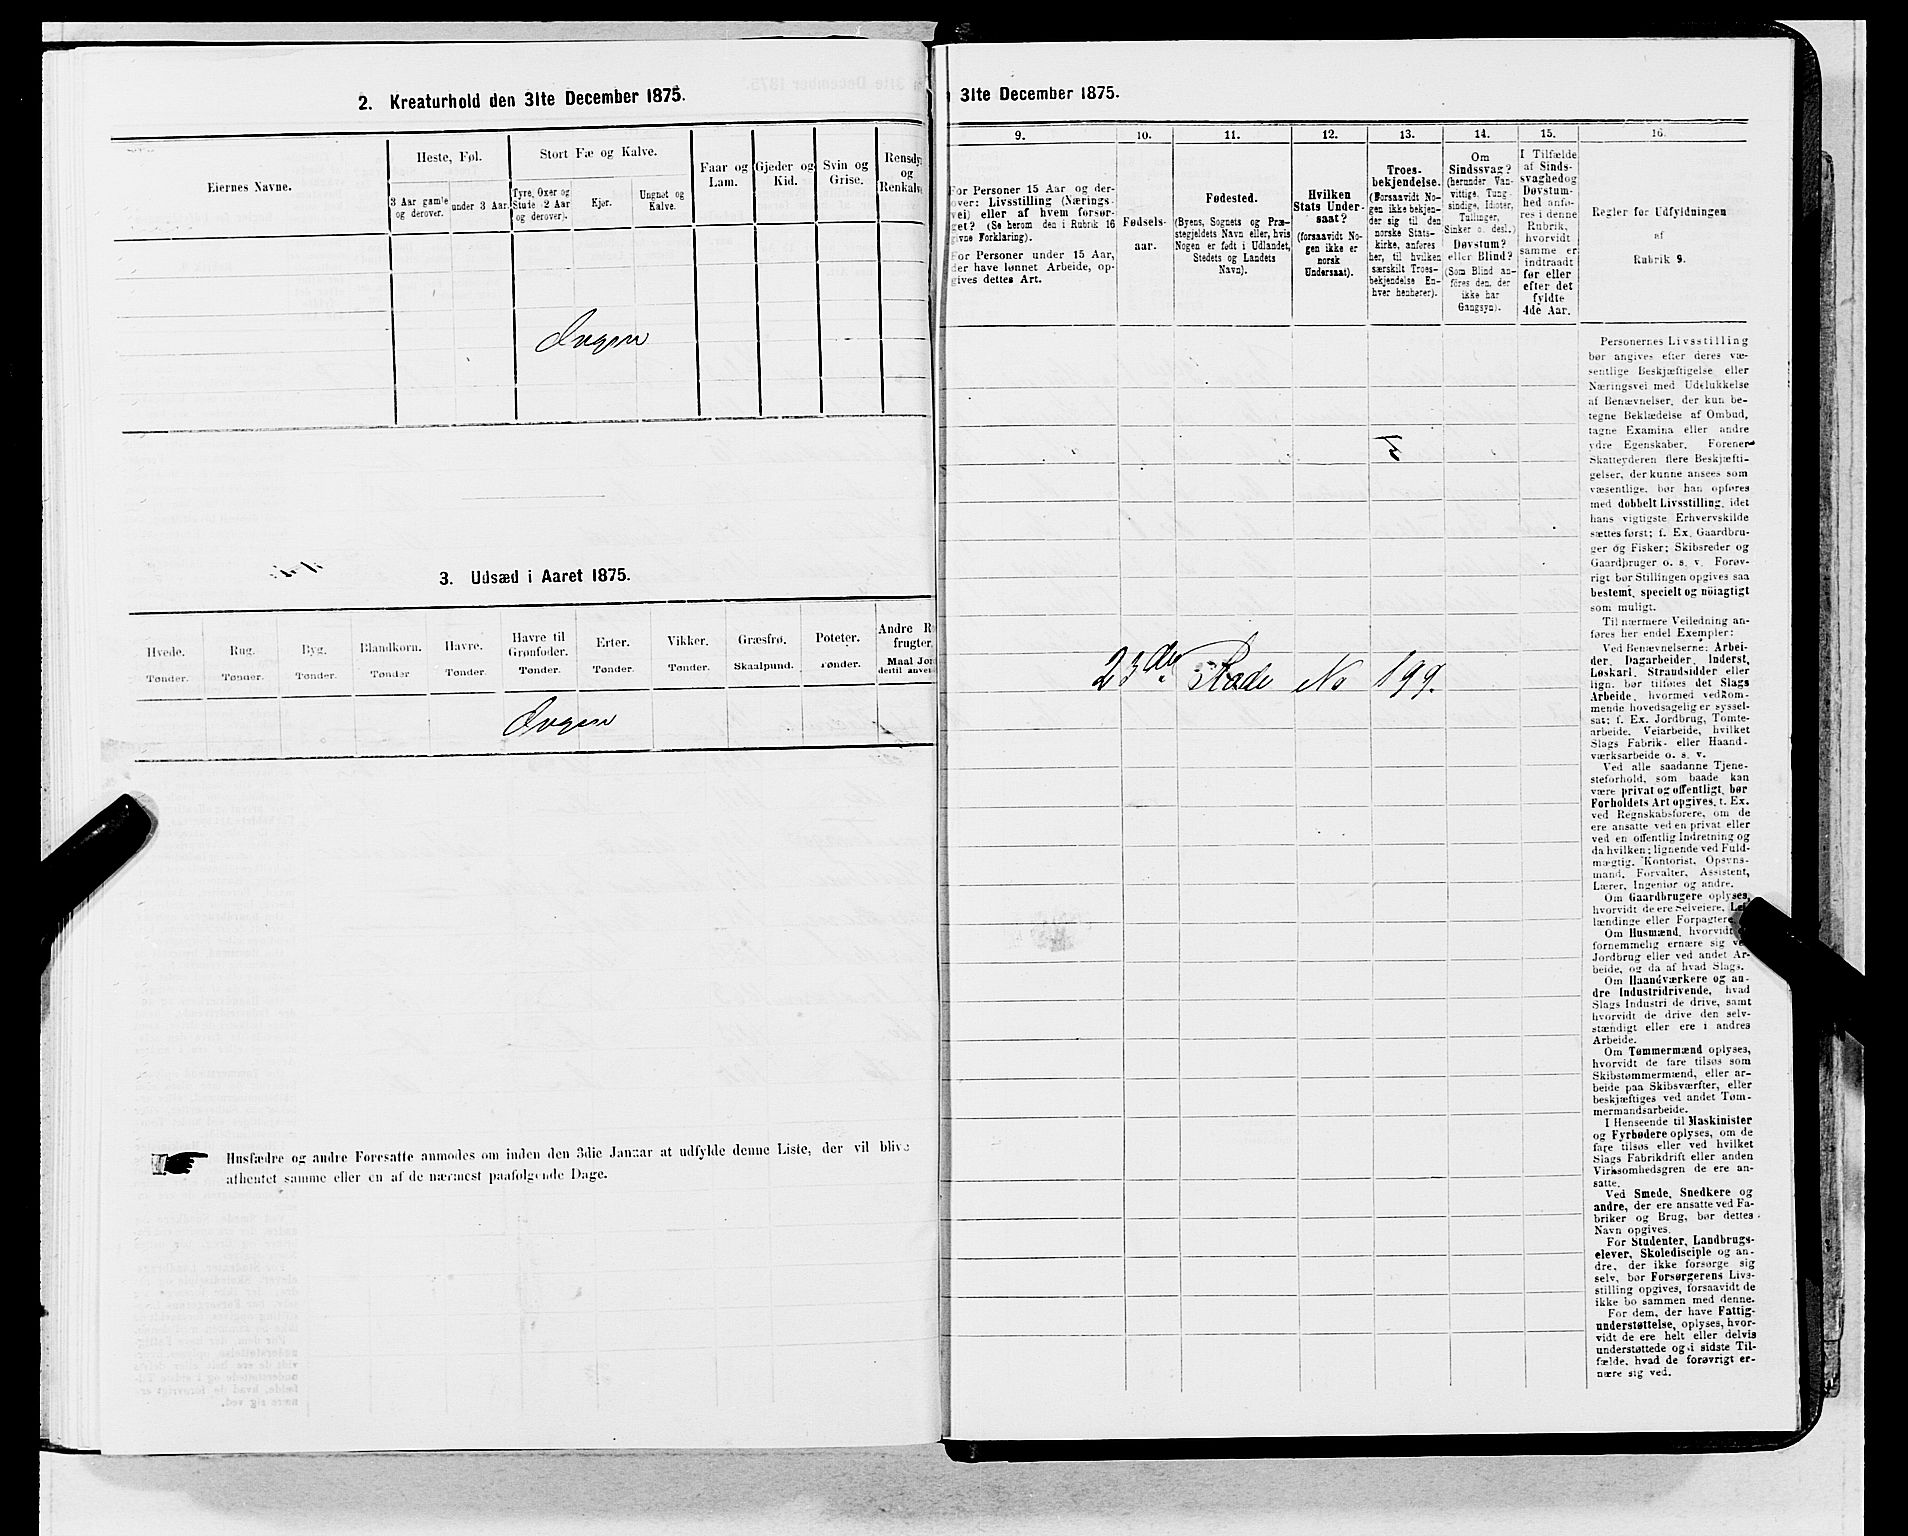 2. Kreaturhold den 31te December 1875.
Eiernes Navne.
Heste, Føl.
3 Aar gamle og derover.
under 3 Aar.
Stort Fæ og Kalve.
Tyre, Oxer og Stute (2 Aar og derover).
Kjør.
Ungnøt og Kalve.
Faar og Lam.
Gjeder og Kid.
Svin og Grise.
og
Ingen
3. Udsæd i Aaret 1875.
Hvede.
Tønder.
Rug.
Tønder.
Byg.
Tønder.
Blandkorn.
Tønder
Havre.
Tønder.
Havre til Grønfoder.
Tønder.
Erter.
Tønder.
Vikker.
Tønder.
Græsfrø.
Skaalpund.
Poteter.
Tønder.
Andre
frugter
Maal
Ingen
Husfædre og andre Foresatte anmodes om inden den 3die Januar at udfylde denne Liste, der vil blive
afhentet samme eller en af de nærmest paafølgende Dage.
31te December 1875.
9.
For Personer 15 Aar og derover: Livsstilling (Næringsvei) eller af hvem forsørget? (Se herom den i Rubrik 16 givne Forklaring).
For Personer under 15 Aar, der have lønnet Arbeide, opgives dettes Art.
10.
Fødselsaar.
11.
Fødested.
(Byens, Sognets og Præstegjeldets Navn eller, hvis Nogen er født i Udlandet, Stedets og Landets Navn).
12.
Hvilken Stats Undersaat?
(forsaavidt Nogen ikke er norsk Undersaat).
13.
Troesbekjendelse.
(Forsaavidt Nogen ikke bekjender sig til den norske Statskirke, anføres her, til hvilken særskilt Troesbekjendelse Enhver henhører).
14.
Om Sindssvag?
(herunder Vanvittige, Tungsindige, Idioter, Tullinger, Sinker o. desl.)
Døvstum? eller Blind?
(Som Blind anføres den, der ikke har Gangsyn).
15.
I Tilfælde af Sindssvaghed og Døvstumhed anføres i denne Rubrik, hvorvidt samme er indtraadt før eller efter det fyldte 4de Aar.
16.
Regler for Udfyldningen
af
Rubrik 9.
23de Rode No 199.
Personernes Livsstilling
bør angives efter deres væ-
sentlige Beskjæftigelse eller
Næringsvei med Udelukkelse
af Benævnelser, der kun be-
tegne Beklædelse af Ombud,
tagne Examina eller andre
ydre Egenskaber. Forener
Skatteyderen flere Beskjæfti-
gelser, der kunne ansees som
væsentlige, bør han opføres
med dobbelt Livsstilling, idet
hans vigtigste Erhvervskilde
sættes først; f. Ex. Gaardbru-
ger og Fisker; Skibsreder og
Gaardbruger o. s. v. Forøv-
rigt bør Stillingen opgives saa
bestemt, specielt og nøiagtigt
som muligt.
Til nærmere Veiledning an-
føres her endel Exempler:
Ved Benævnelserne: Arbei-
der, Dagarbeider, Inderst,
Løskarl, Strandsidder eller
lign. bør tilføies det Slags
Arbeide, hvormed vedkom-
mende hovedsagelig er syssel-
sat; f. Ex. Jordbrug, Tomte-
arbeide, Veiarbeide, hvilket
Slags Fabrik- eller Haand-
værksarbeide o. s. v.
Ved alle saadanne Tjene-
steforhold, som baade kan
være privat og offentligt, bør
Forholdets Art opgives, t. Ex.
ved Regnskabsførere, om de
ere ansatte ved en privat eller
ved en offentlig Indretning og
da hvilken; lignende ved Fuld-
mægtig, Kontorist, Opsyns-
mand, Forvalter, Assistent,
Lærer, Ingeniør og andre.
Om Gaardbrugere oplyses,
hvorvidt de ere Selveiere, Lei-
lændinge eller Forpagtere.
Om Husmænd, hvorvidt
fornemmelig ernære sig ved
Jordbrug eller ved andet Ar-
beide, og da af hvad Slags.
Om Haandværkere og an-
dre Industridrivende, hvad
Slags Industri de drive, samt
hvorvidt de drive den selv-
stændigt eller ere i andres
Arbeide.
Om Tømmermænd oplyses,
hvorvidt de fare tilsøs som
Skibstømmermænd, eller ar-
beide paa Skibsværfter, eller
beskjæftiges ved andet Tøm-
mermandsarbeide.
I Henseende til Maskinister
og Fyrbødere oplyses, om de
fare tilsøs eller ved hvilket
Slags Fabrikdrift eller anden
Virksomhedsgren de ere an-
satte.
Ved Smede, Snedkere og
andre, der ere ansatte ved Fa-
briker og Brug, bør dettes
Navn opgives.
For Studenter, Landbrugs-
elever, Skoledisciple og an-
dre, der ikke forsørge sig
selv, bør Forsørgerens Livs-
stilling opgives, forsaavidt de
ikke bo sammen med denne.
For dem, der have Fattig-
understøttelse, oplyses, hvor-
vidt de ere helt eller delvis
understøttede og i sidste Til-
fælde, hvad de forøvrigt er-
nære sig ved.